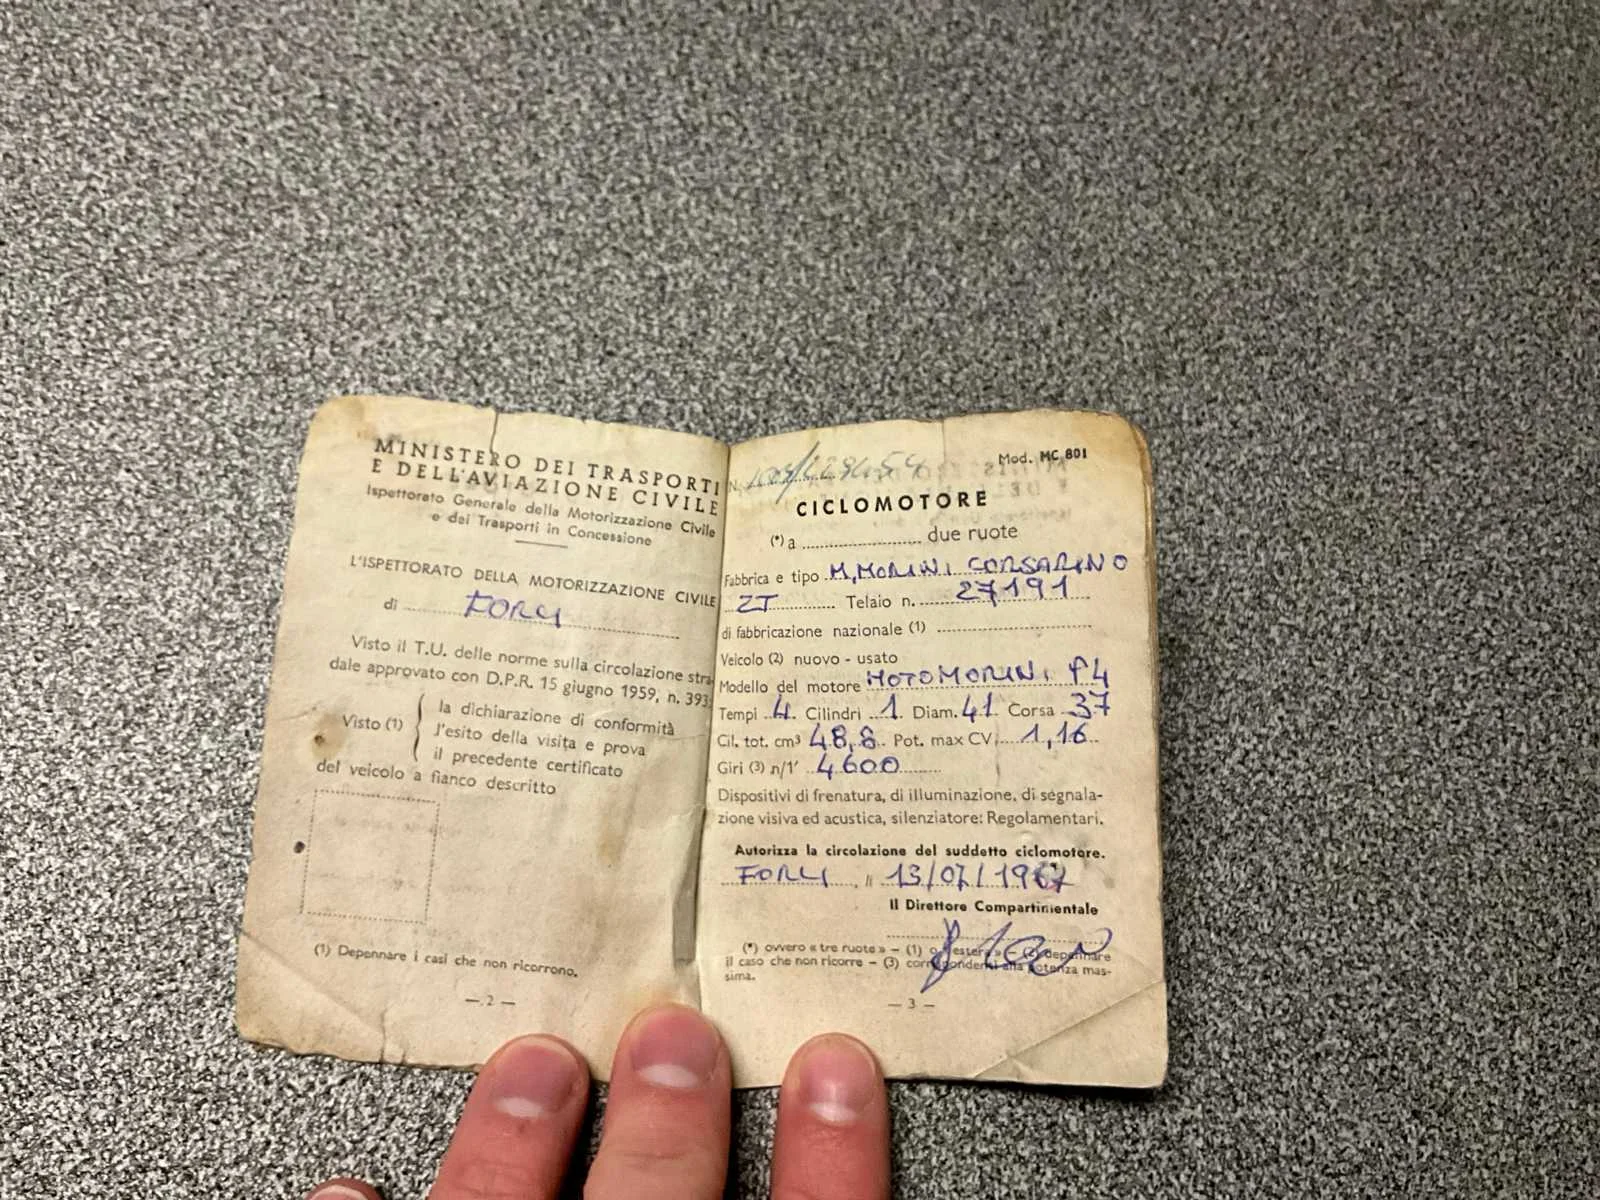 MINISTERO DEI TRASPORTI
E DELL'AVIAZIONE CIVILE
Ispettorato Generale della Motorizzazione Civile
e dei Trasporti in Concessione
L'ISPETTORATO DELLA MOTORIZZAZIONE CIVILE
di FORLI
Visto il T.U. delle norme sulla circolazione stra-
dale approvato con D.P.R. 15 giugno 1959, n. 393:
Visto (1)
la dichiarazione di conformità
l'esito della visita e prova
il precedente certificato
del veicolo a fianco descritto
(1) Depennare i casi che non ricorrono.
— 2 —
Mod. MC 801
N.
CICLOMOTORE
(*) a .................... due ruote
Fabbrica e tipo M. MORINI CORSARINO
ZT Telaio n. 27191
di fabbricazione nazionale (1)
Veicolo (2) nuovo - usato
Modello del motore MOTOMORINI F4
Tempi 4 Cilindri 1 Diam. 41 Corsa 37
Cil. tot. cm³ 48,8 Pot. max CV. 1,16
Giri (3) n/1' 4600
Dispositivi di frenatura, di illuminazione, di segnala-
zione visiva ed acustica, silenziatore: Regolamentari.
Autorizza la circolazione del suddetto ciclomotore.
FORLI, li 13/07/1967
Il Direttore Compartimentale
(*) ovvero « tre ruote » – (1) o « estera » – (2) depennare
il caso che non ricorre – (3) corrispondenti alla potenza mas-
sima.
— 3 —